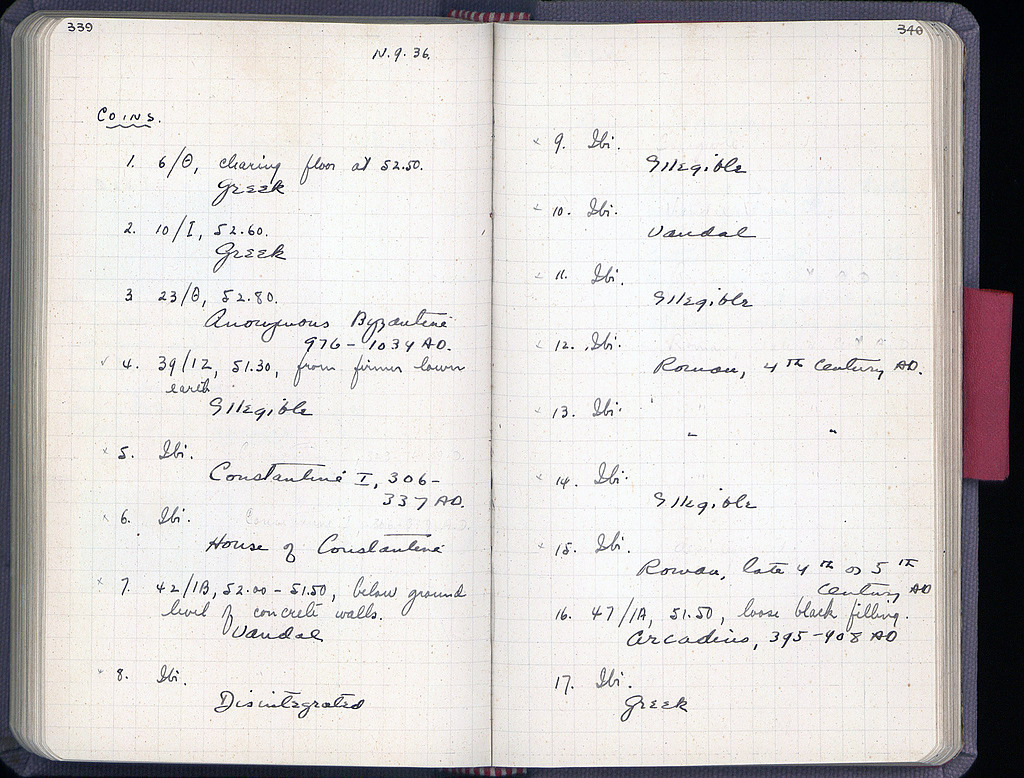 339
N.9.36.
COINS.
1. 6/Θ, clearing floor at 52.50.
Greek
2. 10/I, 52.60.
Greek
3 23/Θ, 52.80.
Anonymous Byzantine
976-1034 AD.
4. 39/12, 51.30, from firmer lower
earth
Illegible
5. Ibi.
Constantine I, 306-
337 AD.
6. Ibi.
House of Constantine
7. 42/1B, 52.00-51.50, below ground
level of concrete walls.
Vandal
8. Ibi.
Disintegrated
340
9. Ibi.
Illegible
10. Ibi.
Vandal
11. Ibi.
Illegible
12. Ibi.
Roman, 4th Century AD.
13. Ibi.
" "
14. Ibi.
Illegible
15. Ibi.
Roman, late 4th or 5th
Century AD
16. 47/1A, 51.50, loose black filling.
Arcadius, 395-408 AD
17. Ibi.
Greek